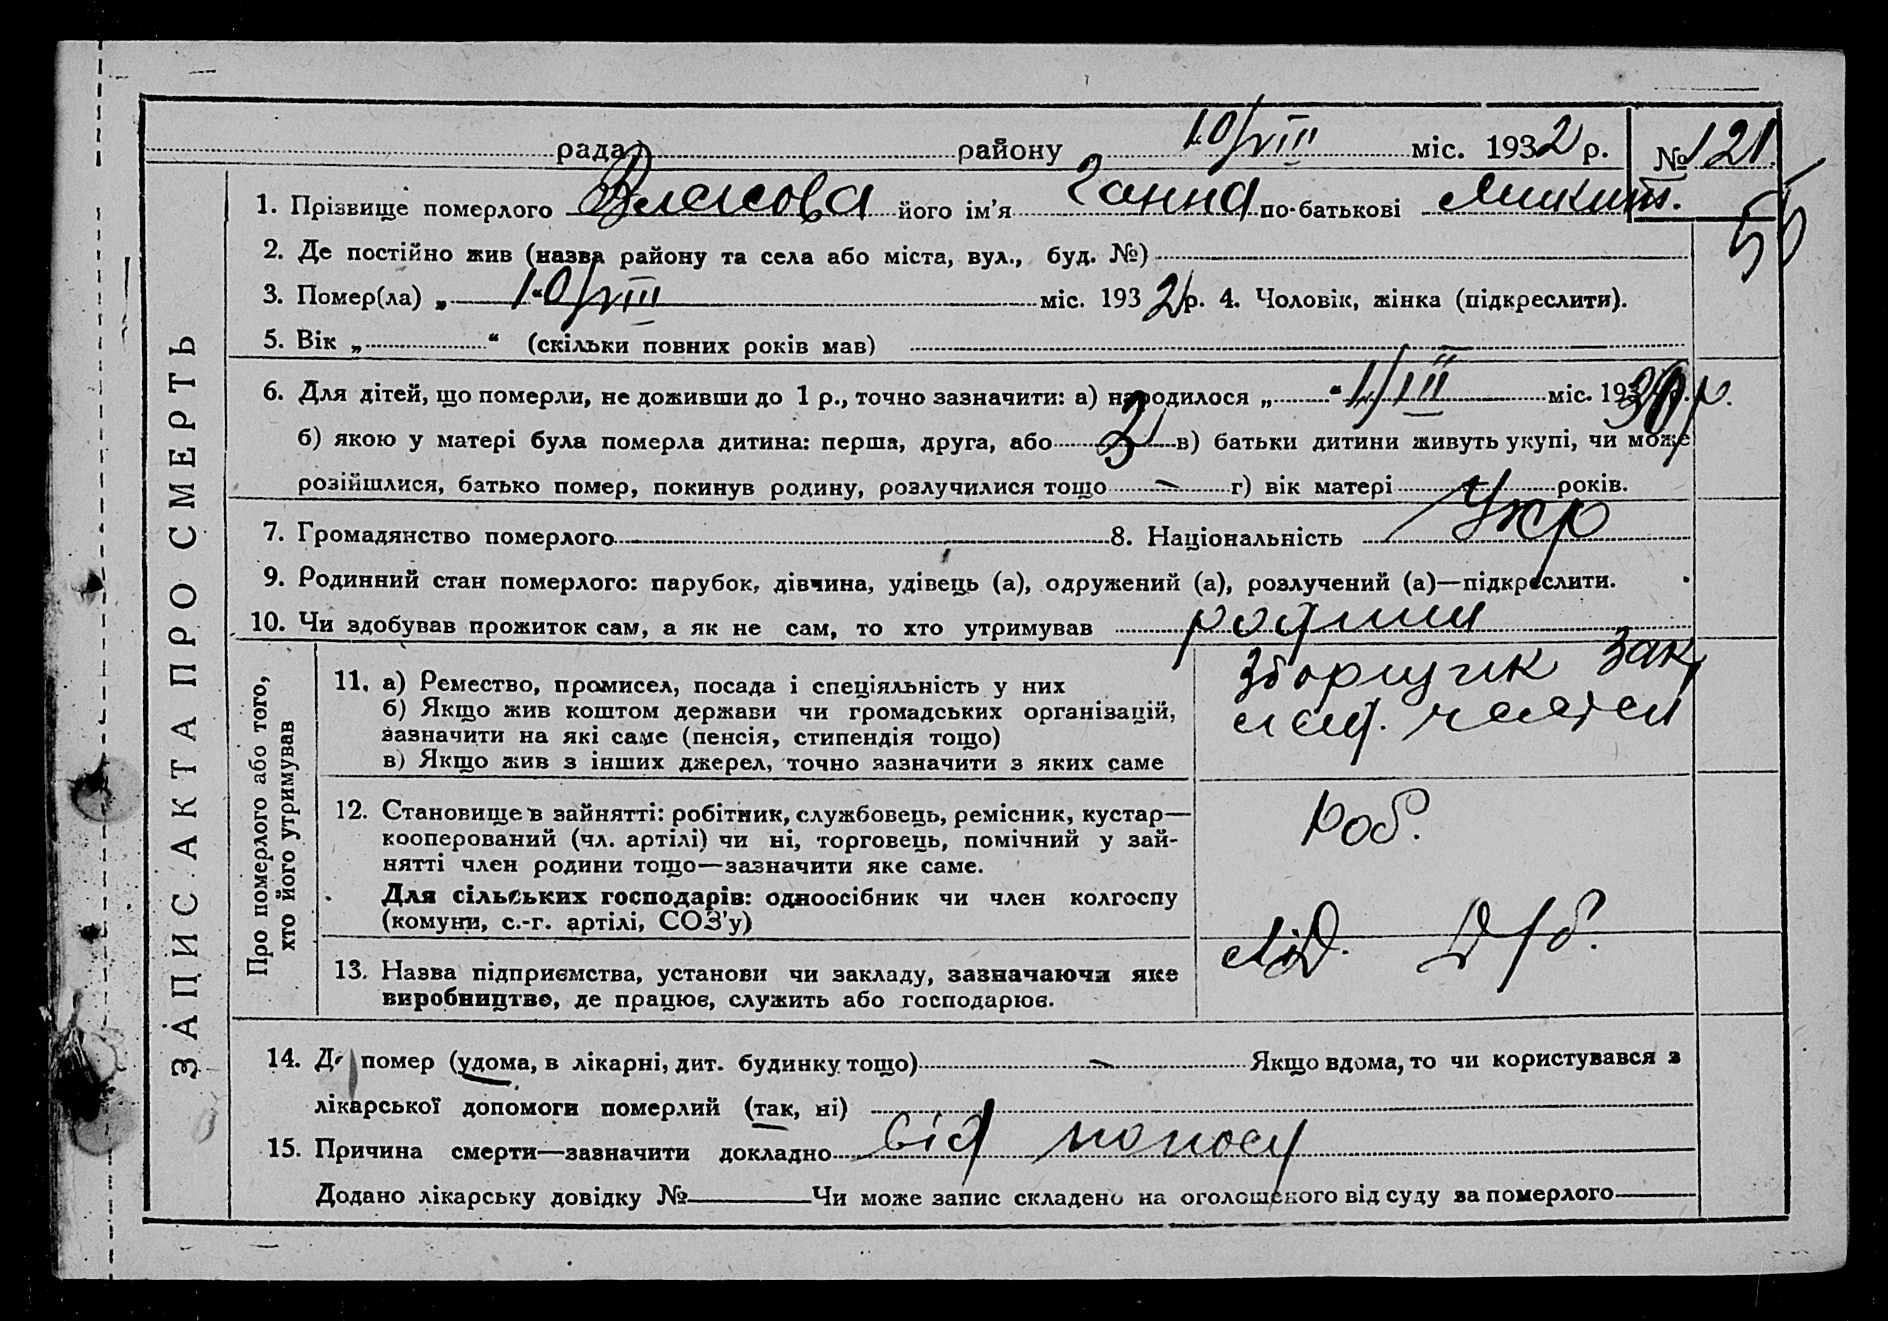 рада району 10/VIII міс. 1932 р. № 121.
55
1. Прізвище померлого Власова його ім'я Ганна по-батькові Микит.
2. Де постійно жив (назва району та села або міста, вул., буд. №)
3. Помер(ла) „ 10/VIII міс. 1932 р. 4. Чоловік, жінка (підкреслити).
5. Вік „ “ (скільки повних років мав)
6. Для дітей, що померли, не доживши до 1 р., точно зазначити: а) народилося „ “ 1/III міс. 1930 р.
б) якою у матері була померла дитина: перша, друга, або 3 в) батьки дитини живуть укупі, чи може
розійшлися, батько помер, покинув родину, розлучилися тощо — г) вік матері років.
7. Громадянство померлого 8. Національність Укр
9. Родинний стан померлого: парубок, дівчина, удівець (а), одружений (а), розлучений (а)—підкреслити.
10. Чи здобував прожиток сам, а як не сам, то хто утримував родини
ЗАПИС АКТА ПРО СМЕРТЬ
Про померлого або того,
хто його утримував
11. а) Ремество, промисел, посада і спеціяльність у них
б) Якщо жив коштом держави чи громадських організацій,
зазначити на які саме (пенсія, стипендія тощо)
в) Якщо жив з інших джерел, точно зазначити з яких саме
зборщик
12. Становище в зайнятті: робітник, службовець, ремісник, кустар—
кооперований (чл. артілі) чи ні, торговець, помічний у зай-
нятті член родини тощо—зазначити яке саме.
Для сільських господарів: одноосібник чи член колгоспу
(комуни, с.-г. артілі, СОЗ'у)
Роб.
13. Назва підприємства, установи чи закладу, зазначаючи яке
виробництво, де працює, служить або господарює.
14. Де помер (удома, в лікарні, дит. будинку тощо) — Якщо вдома, то чи користувався з
лікарської допомоги померлий (так, ні)
15. Причина смерти—зазначити докладно від поносу
Додано лікарську довідку № Чи може запис складено на оголошеного від суду за померлого